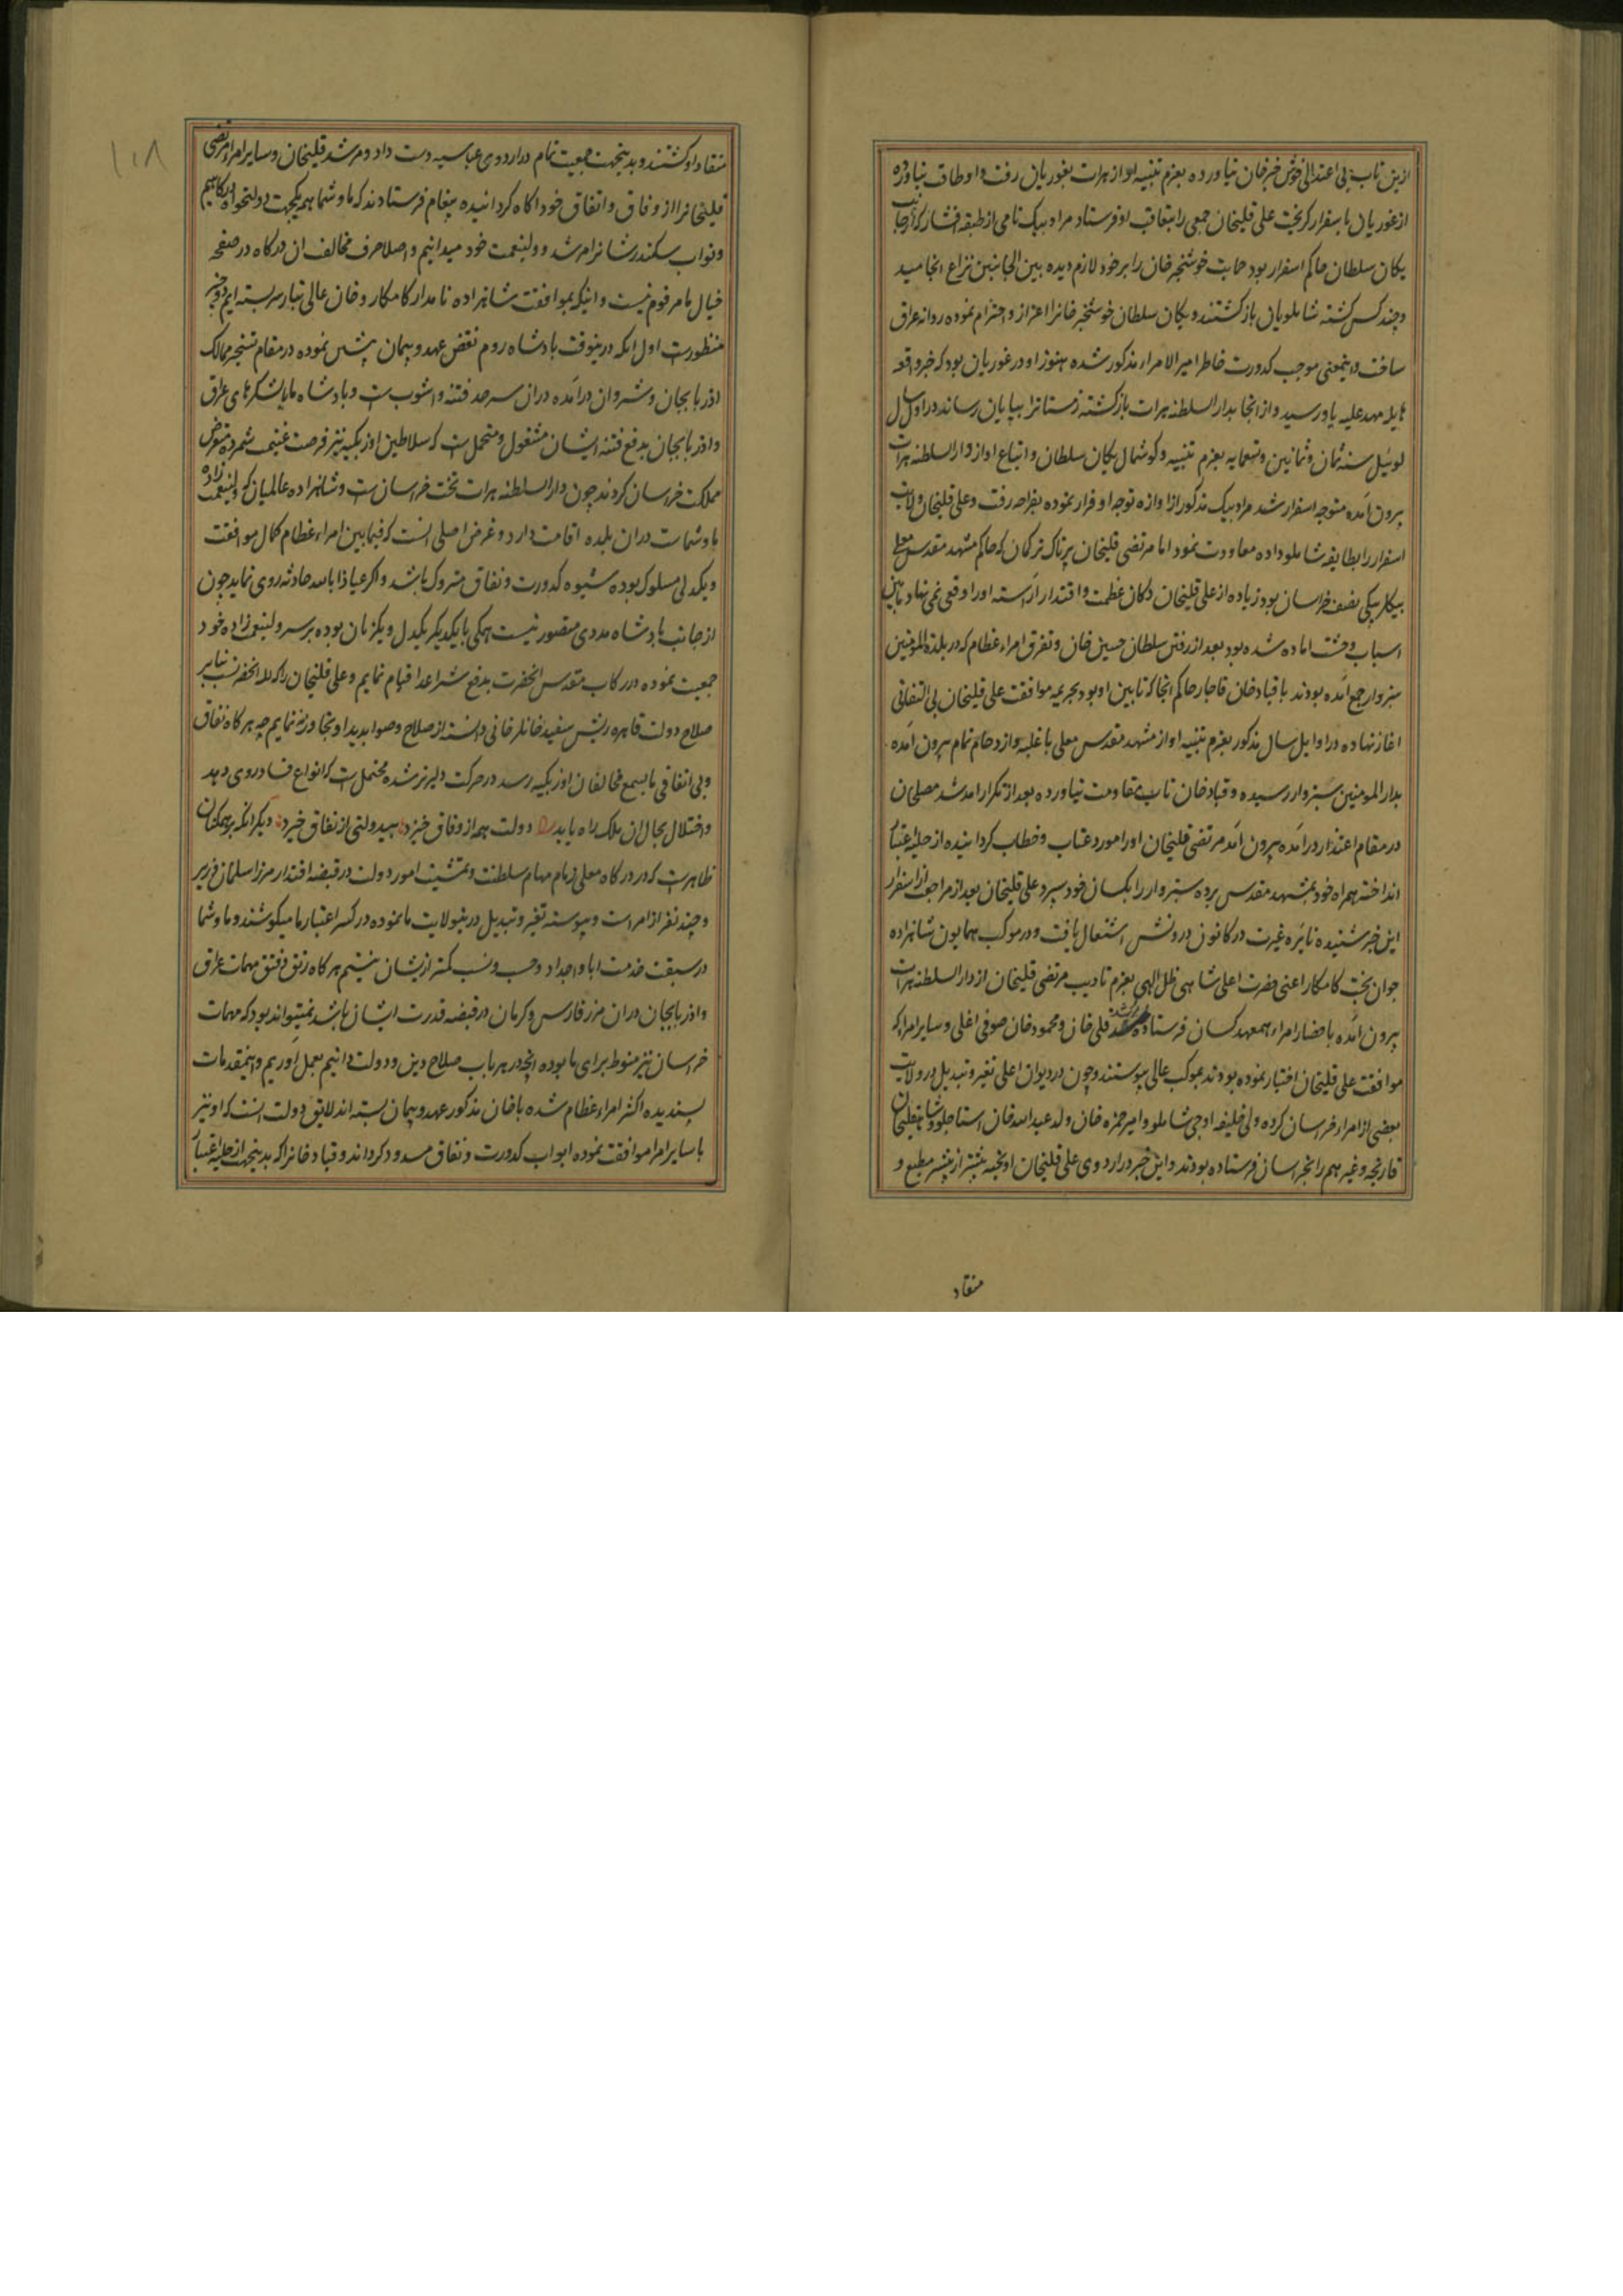 ازین تاب بی اعتدالی خوش خبر خان نیاورده بعزم تنبیه او از هرات بغوریان رفت و او طاق نیاورده
از غوریان باسفرار کریخت علی قلیخان جمعی را بتعاقب او فرستاد مراد بیک نامی از طبقه افشار که از جانب
یکان سلطان حاکم اسفرار بود حمایت خوشخبر خان را بر خود لازم دیده بین الجانبین نزاع انجامید
و چند کس کشته شاملویان بازکشتند و یکان سلطان خوشخبر خانرا اعزاز و احترام نموده روانه عراق
ساخت و اینمعنی موجب کدورت خاطر امیر الامراء مذکور شده هنوز او در غوریان بود که خبر واقعه
هایله مهد علیه باو رسید و از انجا بدار السلطنه هرات بازکشته زمستانرا بپایان رساند در اوایل سال
لوئیل سنه ثمان و ثمانین و تسعمایه بعزم تنبیه و کوشمال یکان سلطان و اتباع او از دار السلطنه هرات
بیرون آمده متوجه اسفرار شد مراد بیک مذکور از اوازه توجه او فرار نموده بفراه رفت و علی قلیخان ولایت
اسفرار را بطایفه شاملو داده معاودت نمود اما مرتضی قلیخان پرناک ترکمان که حاکم مشهد مقدس معلی
بیکلربیکی نصف خراسان بود زیاده از علی قلیخان دکان عظمت و اقتدار آراسته او را وقعی نمی نهاد مابین
اسباب وحشت اماده شده بود بعد از رفتن سلطان حسین خان و تفرق امراء عظام که در بلدة المومنین
سبزوار جمع آمده بودند با قباد خان قاجار حاکم انجا که تابین او بود بجریمه موافقت علی قلیخان بی التفاتی
اغاز نهاده در اوایل سال مذکور بعزم تنبیه او از مشهد مقدس معلی با غلبه و ازدحام تمام بیرون آمده
بدار المومنین سبزوار رسیده و قباد خان تاب مقاومت نیاورده بعد از تکرار امد شد مصلحان
در مقام اعتذار درآمده بیرون آمد مرتضی قلیخان او را مورد عتاب و خطاب کردانیده از حلیه اعتبار
انداخته همراه خود بمشهد مقدس برده سبزوار را بکسان خود سپرد علی قلیخان بعد از مراجعت از اسفرار
این خبر شنیده نایره غیرت در کانون درونش اشتعال یافت و در موکب همایون شاهزاده
جوان بخت کامکار اعنی حضرت اعلی شاهی ظل الهی بعزم تادیب مرتضی قلیخان از دار السلطنه هرات
بیرون آمده باحضار امراء همعهد کسان فرستاده مرشد قلی خان و محمود خان صوفی اغلی و سایر امرا که
موافقت علی قلیخان اختیار نموده بودند بموکب عالی پیوستند و چون در دیوان اعلی تغیر و تبدیل در ولایت
بعضی از امراء خراسان کرده ولی خلیفه اوجی شاملو و امیر حمزه خان ولد عبد الله خان استاجلو و شاهقلیخان
قارنجه و غیرهم را بخراسان فرستاده بودند و این خبر در اردوی علی قلیخان او نخبه بیشتر از پیشتر مطیع و
منقاد
۱۰۸
منقاد او کشتند و بدینجهت جمعیت تمام در اردوی عباسیه دست داد و مرشد قلیخان و سایر امرا مرتضی
قلیخانرا از وفاق و اتفاق خود اکاه کردانیده پیغام فرستادند که ما و شما همه یکجهت و دولتخواه یکدرکاهیم
و نواب سکندر شانرا مرشد و ولینعمت خود میدانیم و اصلا حرف مخالف ان درکاه در صفحه
خیال ما مرقوم نیست و اینکه بموافقت شاهزاده نامدار کامکار و خان عالی تبار سر بسته ایم دو چیز
منظورست اول انکه درینوقت پادشاه روم نقض عهد و پیمان پیش نموده در مقام تسخیر ممالک
اذربایجان و شروان درآمده دران سرحد فتنه و اشوب است و پادشاه ما با لشکرهای عراق
و اذربایجان بدفع فتنه ایشان مشغول و محتمل است که سلاطین اوزبکیه نیز فرصت غنیمت شمرده متعرض
مملکت خراسان کردند چون دار السلطنه هرات تخت خراسان است و شاهزاده عالمیان که ولینعمت زاده
ما و شماست دران بلده اقامت دارد و غرض اصلی انست که فیمابین امراء عظام کمال موافقت
و یکدلی مسلوک بوده شیوه کدورت و نفاق متروک باشد و اکر عیاذا بالله حادثه روی نماید چون
از جانب پادشاه مددی متصور نیست همکی با یکدیکر یکدل و یکزبان بوده بر سر ولینعمت زاده خود
جمعیت نموده در رکاب مقدس انحضرت بدفع شر اعدا قیام نمایم و علی قلیخان را که للـه انحضرتست بنابر
صلاح دولت قاهره ریش سفید خانلر خانی دانسته از صلاح و صوابدید او تجاوز ننمایم چه هرکاه نفاق
و بی اتفاقی ما بسمع مخالفان اوزبکیه رسد در حرکت دلیرتر شده محتمل است که انواع فساد روی دهد
و اختلال بحال ان ملک راه یابد دولت همه از وفاق خیزد بیدولتی از نفاق خیزد دیکر انکه بر همکنان
ظاهرست که در درکاه معلی زمام مهام سلطنت و تمشیت امور دولت در قبضه اقتدار مرزا سلمان وزیر
و چند نفر از امراست و پیوسته تغیر و تبدیل در تیولایت ما نموده در کسر اعتبار ما میکوشند و ما و شما
در سبقت خدمت ابا و اجداد و حسب و نسب کمتر ازیشان نیستیم هرکاه رتق و فتق مهمات عراق
و اذربایجان دران مرز فارس و کرمان در قبضه قدرت ایشان باشد نمیتواند بود که مهمات
خراسان نیز منوط برای ما بوده انچه در هر باب صلاح دین و دولت دانیم بعمل اوریم و اینمقدمات
پسندیده اکثر امراء عظام شده با خان مذکور عهد و پیمان بسته اند لایق دولت انست که او نیز
با سایر امرا موافقت نموده ابواب کدورت و نفاق مسدود کرداند و قباد خانرا که بدینجهت از حلیه اعتبار